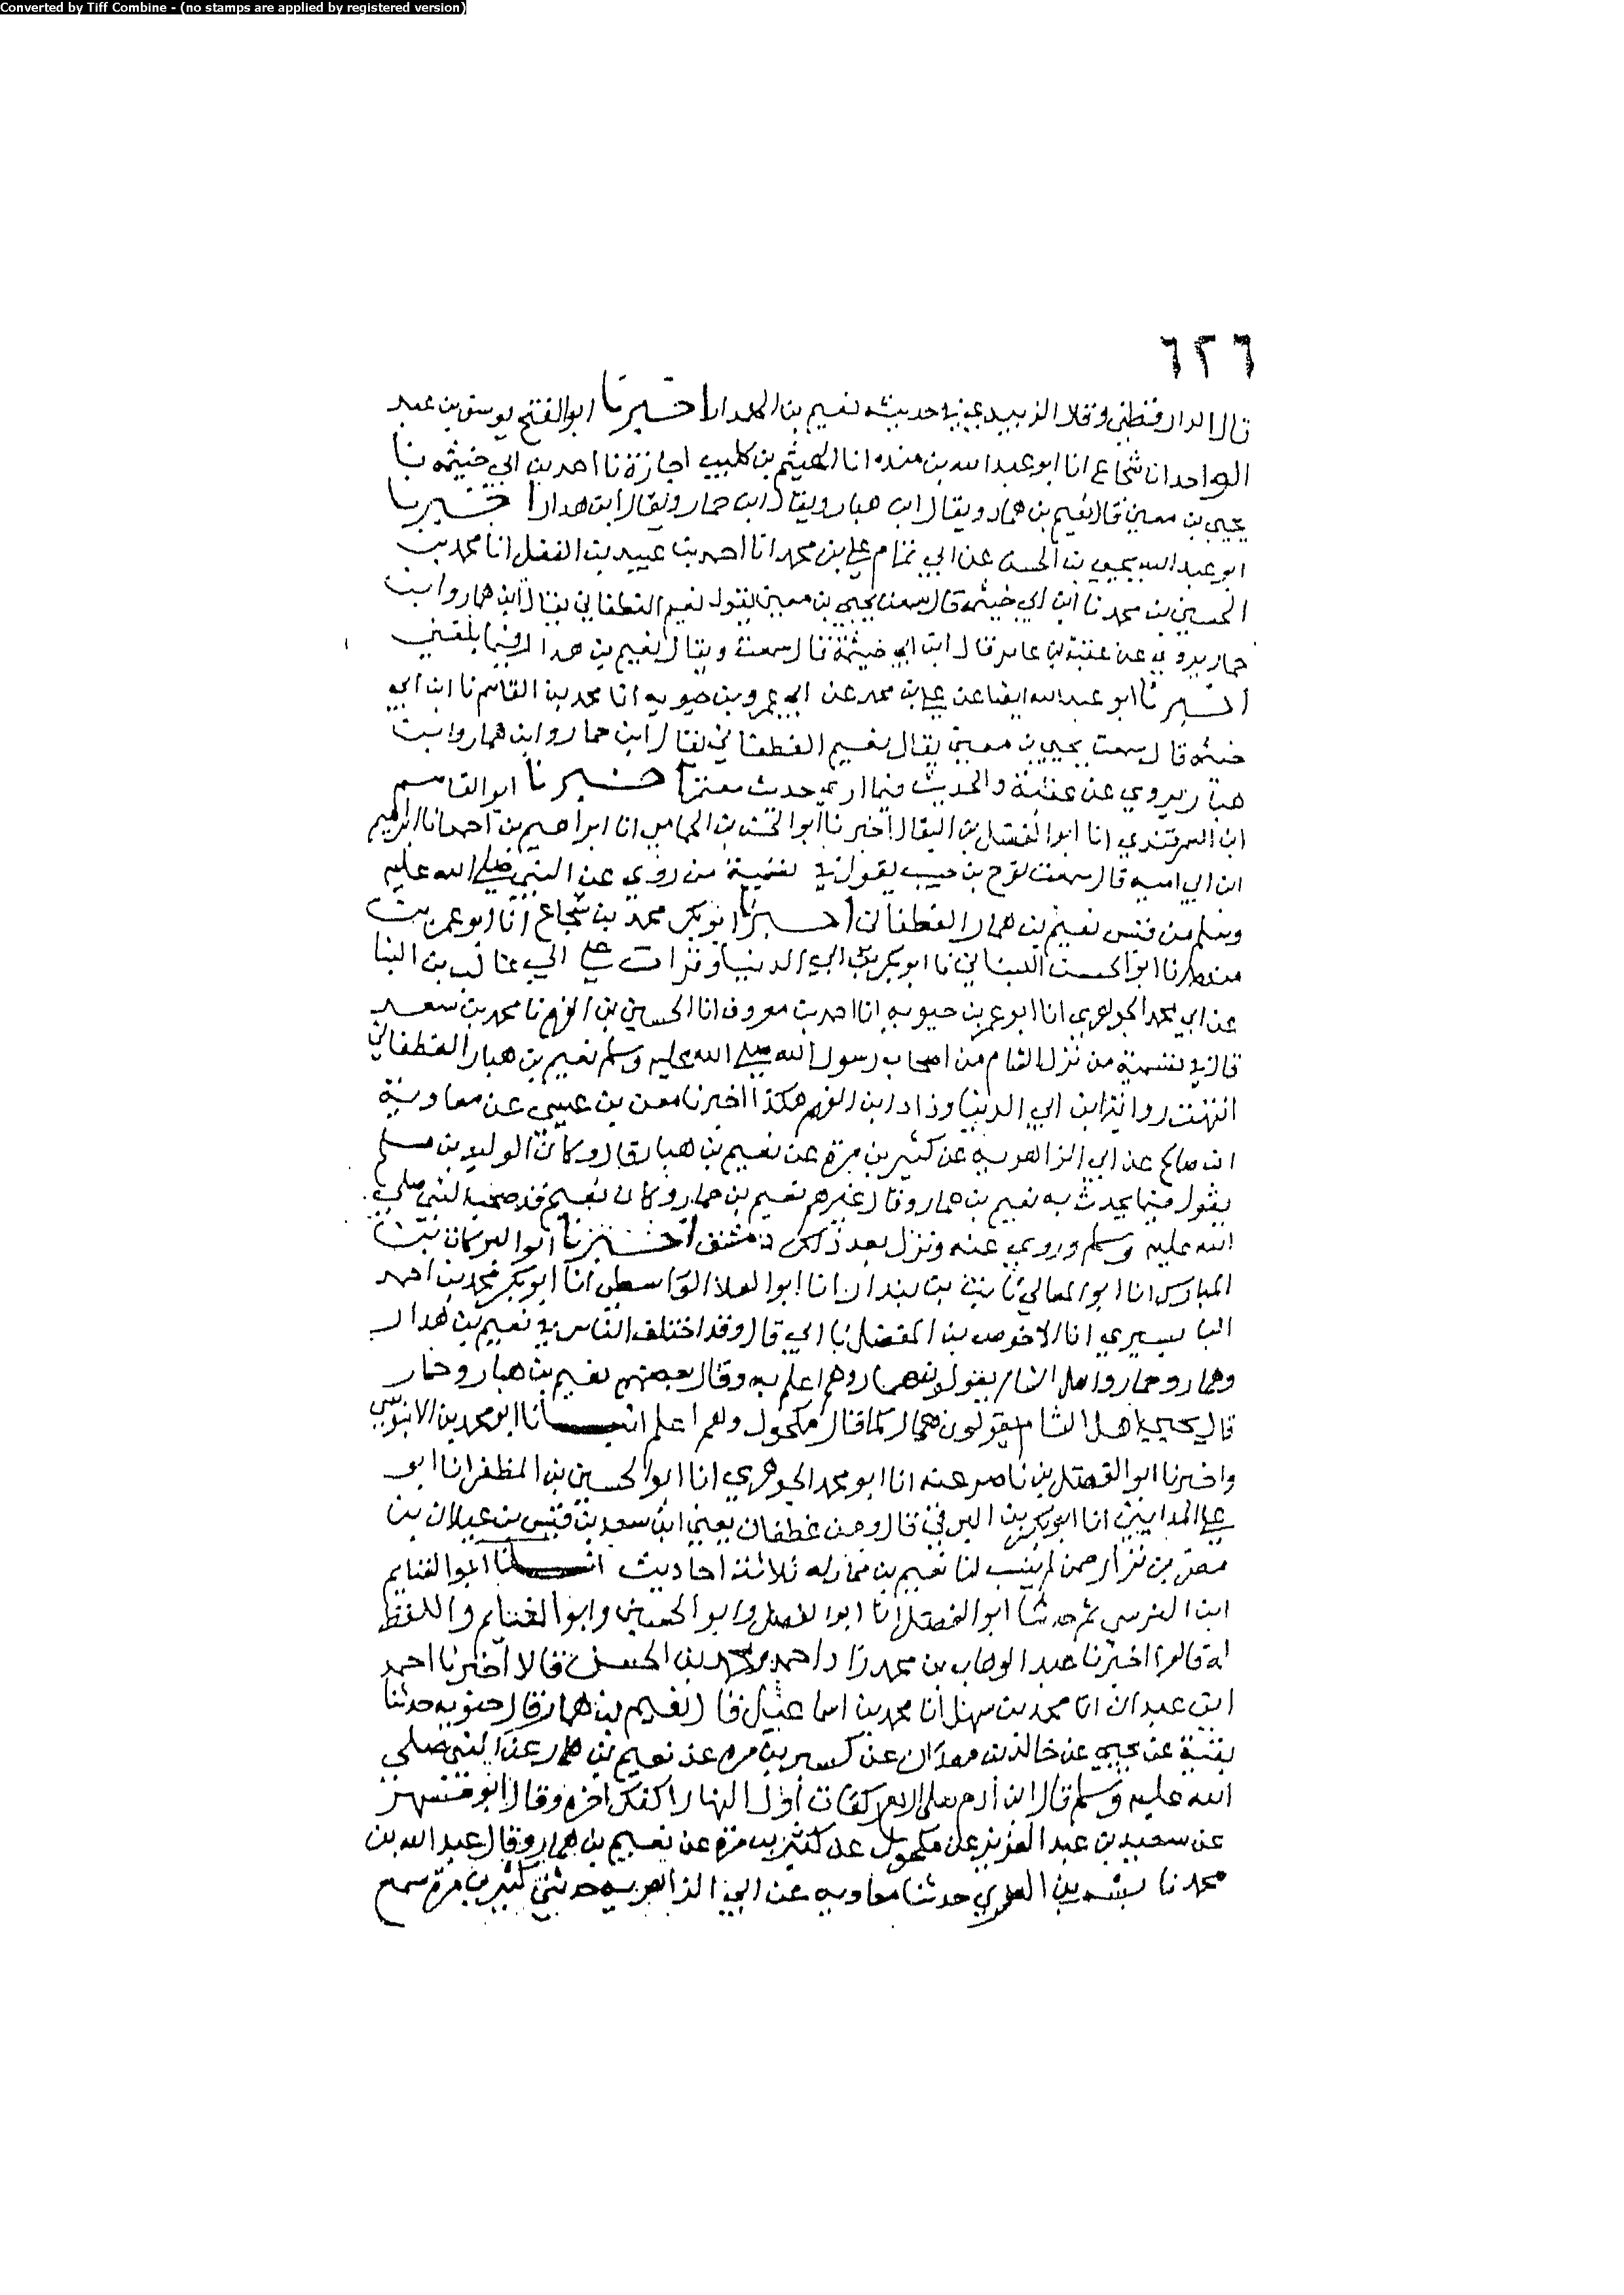 Converted by Tiff Combine - (no stamps are applied by registered version)
٦٢٦
قال الدارقطني وقال الزبيدي في حديثه نعيم بن الهدار اخبرنا ابو الفتح يوسف بن عبد
الواحد انا شجاع انا ابو عبد الله بن منده انا الهيثم بن كليب اجازة نا احمد بن ابي خيثمه نا
يحيى بن معين قال نعيم بن همار ويقال ابن هبار ويقال ابن حمار ويقال ابن هدار اخبرنا
ابو عبد الله يحيى بن الحسن عن ابي تمام علي بن محمد انا احمد بن عبيد بن الفضل انا محمد بن
الحسين بن محمد نا ابن ابي خيثمه قال سمعت يحيى بن معين يقول نعيم الغطفاني يقال ابن همار وابن
حمار يروي عن عقبة بن عامر قال ابن ابي خيثمة قال سمعت ويقال نعيم بن هدار فيما بلغني
اخبرنا ابو عبد الله ايضا عن علي بن محمد عن ابي عمرو بن حيويه انا محمد بن القاسم نا ابن ابي
خيثمه قال سمعت يحيى بن معين يقال نعيم الغطفاني يقال ابن حمار وابن همار وابن
هبار يروي عن عقبة والحديث فيما ارى حديث معتمر اخبرنا ابو القاسم
ابن السمرقندي انا ابو الفضل بن البقال اخبرنا ابو الحسن بن الحمامي انا ابراهيم بن احمد انا ابراهيم
ابن ابي اميه قال سمعت نوح بن حبيب يقول في تسمية من روى عن النبي صلى الله عليه
وسلم من قيس نعيم بن همار الغطفاني اخبرنا ابو بكر محمد بن شجاع انا ابو عمر بن
منده انا ابو الحسن اللبناني نا ابو بكر بن ابي الدنيا وقرات على ابي غالب بن البنا
عن ابي محمد الجوهري انا ابو عمر بن حيويه انا احمد بن معروف انا الحسين بن الفهم نا محمد بن سعد
قال في تسمية من نزل الشام من اصحاب رسول الله صلى الله عليه وسلم نعيم بن هبار الغطفاني
انتهت رواية ابن ابي الدنيا وزاد ابن الفهم هكذا اخبرنا معن بن عيسى عن معاوية
ابن صالح عن ابي الزاهريه عن كثير بن مرة عن نعيم بن هبار قال وكان الوليد بن مسلم
يقول فيما يحدث به نعيم بن همار وقال غيرهم نعيم بن حمار وكان نعيم قد صحب النبي صلى
الله عليه وسلم وروى عنه ونزل بعد ذلك دمشق اخبرنا ابو البركات بن
المبارك انا ابو المعالي ثابت بن بندار انا ابو العلا الواسطي انا ابو بكر محمد بن احمد
البابسيري انا الاحوص بن المفضل نا ابي قال وقد اختلف الناس في نعيم بن هدار
وهمار وحمار واهل الشام يقولون همار وهم اعلم به وقال بعضهم نعيم بن هبار وحمار
قال يحيى اهل الشام يقولون همار كما قال مكحول وهم اعلم انبانا ابو محمد بن الابنوسي
واخبرنا ابو الفضل بن ناصر عنه انا ابو محمد الجوهري انا ابو الحسين بن المظفر انا ابو
علي المدايني انا ابو بكر بن البرقي قال ومن غطفان يعني ابن سعد بن قيس بن عيلان بن
مضر بن نزار ممن لم ينسب لنا نعيم بن همار له ثلاثة احاديث انبانا ابو الغنايم
ابن النرسي ثم حدثنا ابو الفضل انا ابو الفضل وابو الحسين وابو الغنايم واللفظ
له قالوا اخبرنا عبد الوهاب بن محمد زاد احمد ومحمد بن الحسن قالا اخبرنا احمد
ابن عبدان انا محمد بن سهل انا محمد بن اسماعيل قال نعيم بن همار قال حيويه حدثنا
بقية عن بحير عن خالد بن معدان عن كثير بن مره عن نعيم بن همار عن النبي صلى
الله عليه وسلم قال ابن ادم صلي اربع ركعات اول النهار اكفك اخره وقال ابو مسهر
عن سعيد بن عبد العزيز عن مكحول عن كثير بن مره عن نعيم بن همار وقال عبد الله بن
محمد نا بشر بن السري حدثنا معاويه عن ابي الزاهريه حدثني كثير بن مرة سمع